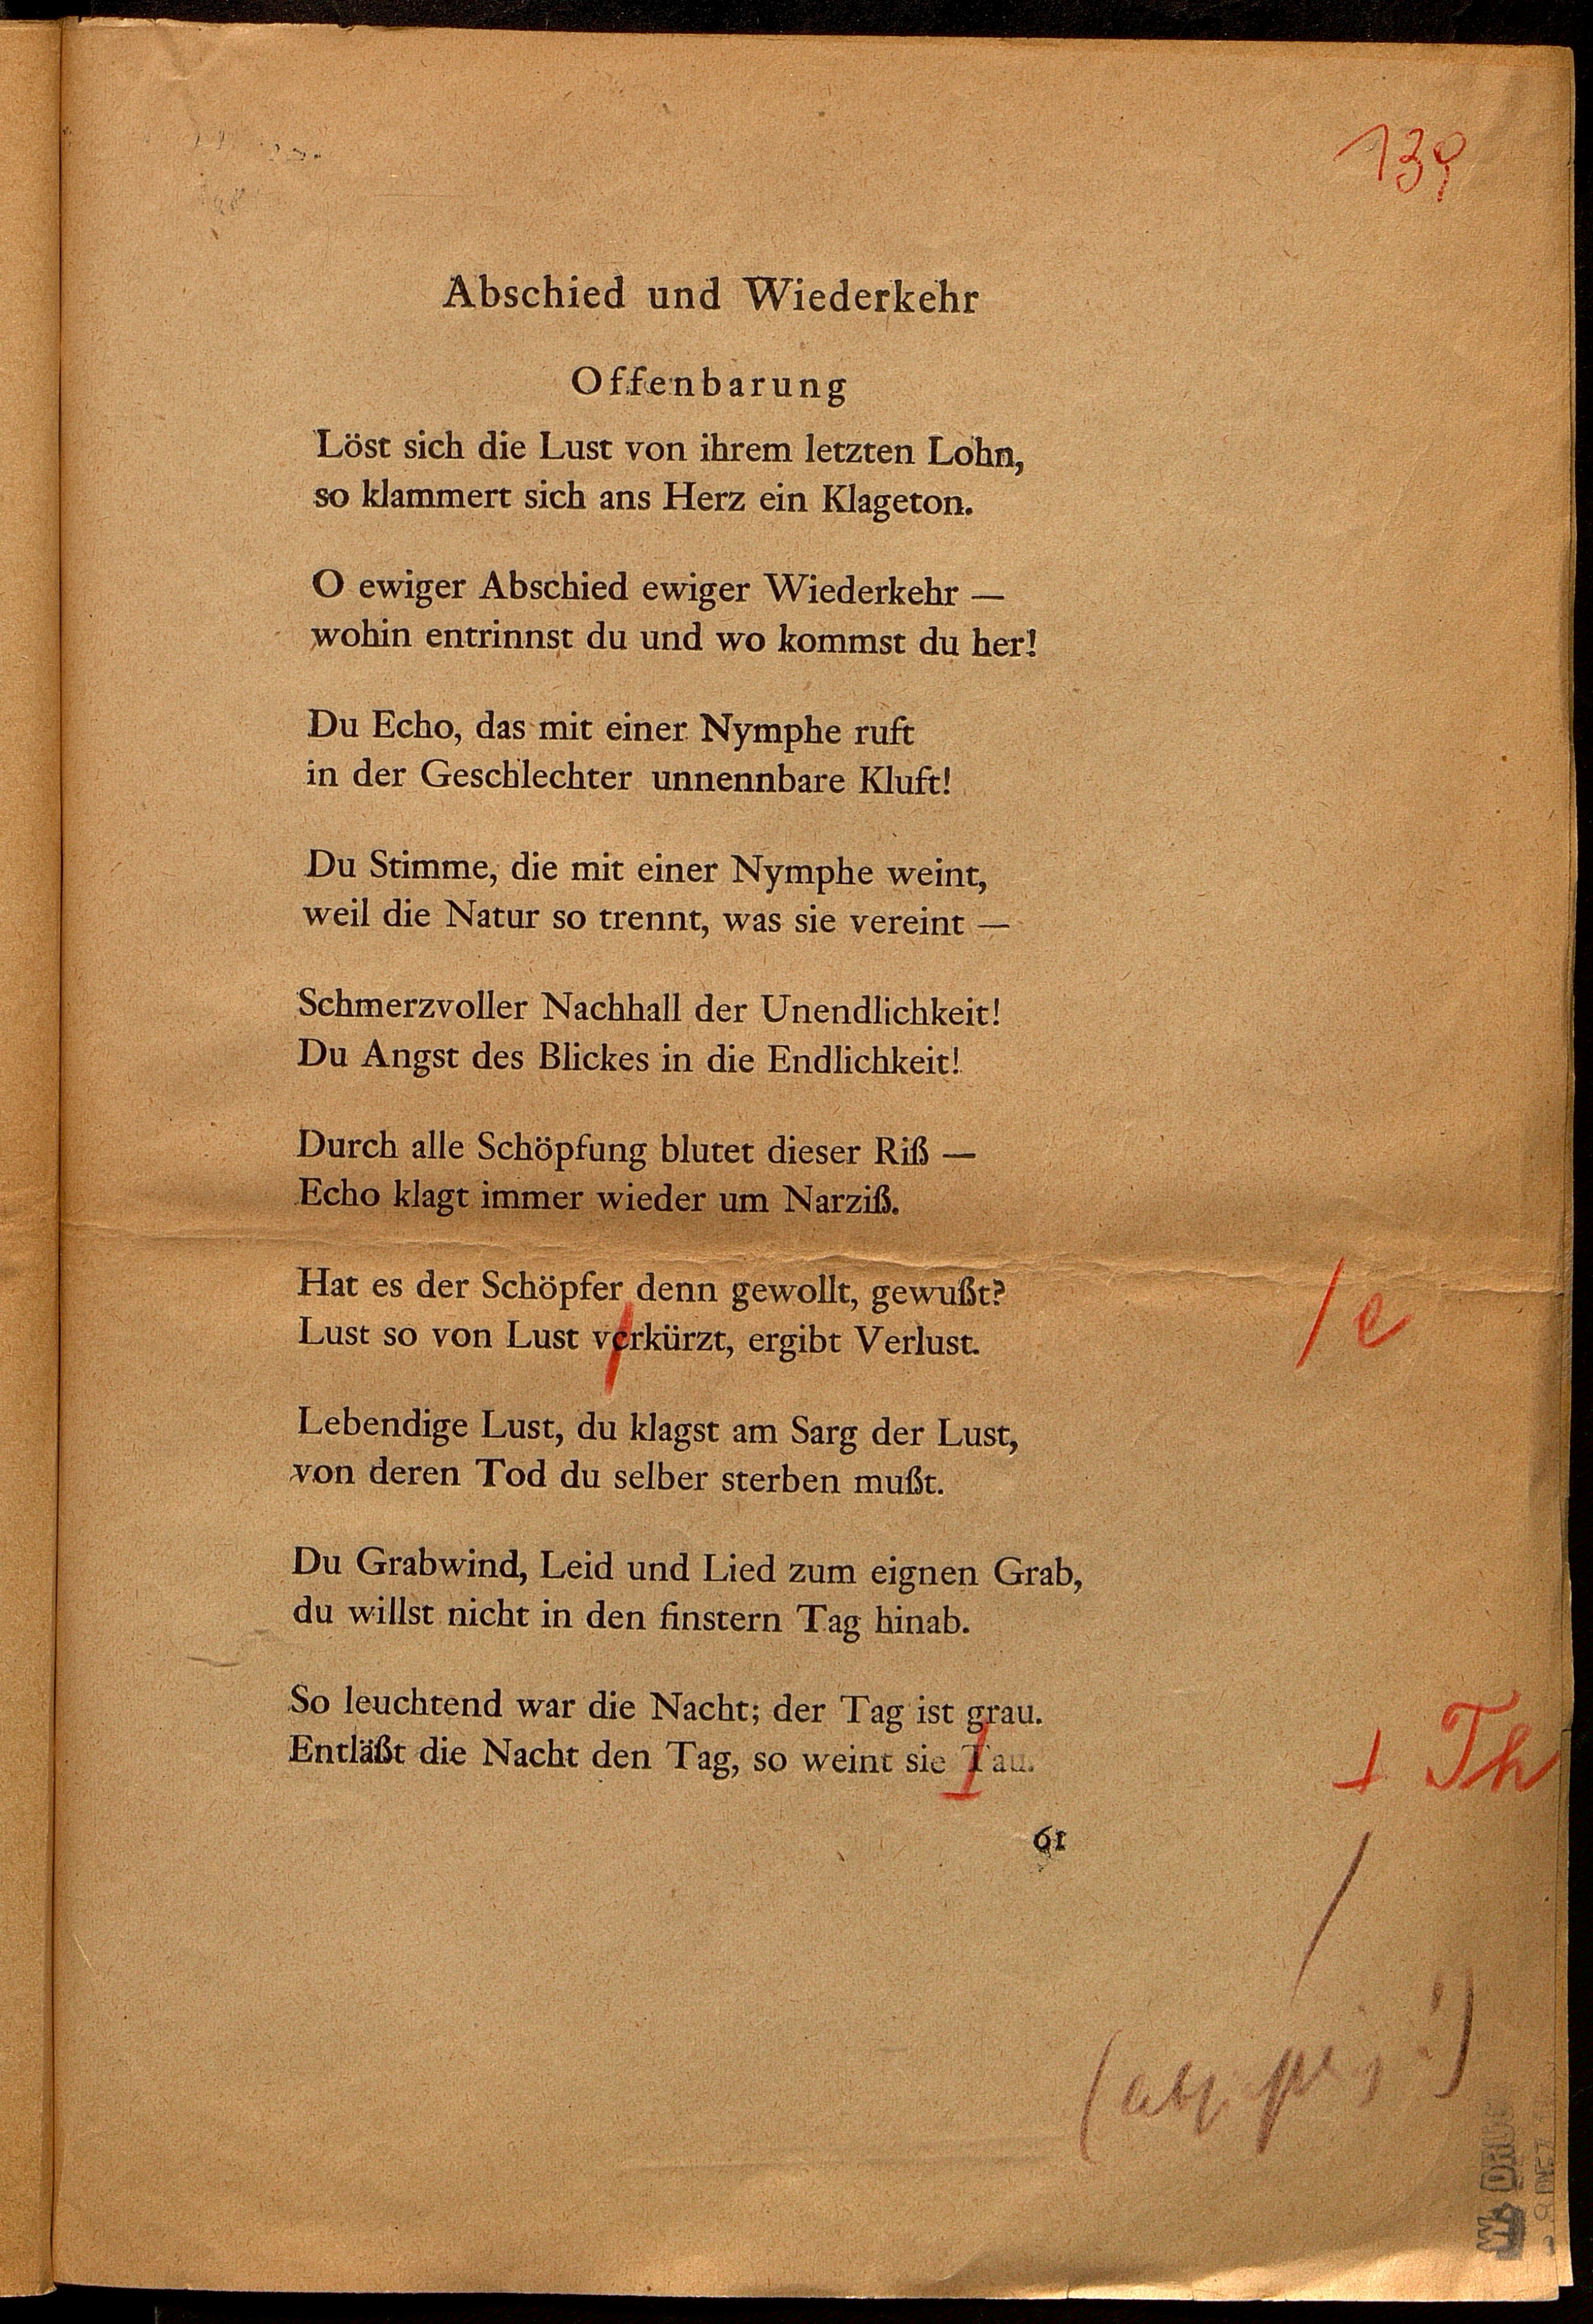 139
Abschied und Wiederkehr
Offenbarung
Löst sich die Lust von ihrem letzten Lohn,
so klammert sich ans Herz ein Klageton.
O ewiger Abschied ewiger Wiederkehr —
wohin entrinnst du und wo kommst du her!
Du Echo, das mit einer Nymphe ruft
in der Geschlechter unnennbare Kluft!
Du Stimme, die mit einer Nymphe weint,
weil die Natur so trennt, was sie vereint —
Schmerzvoller Nachhall der Unendlichkeit!
Du Angst des Blickes in die Endlichkeit!
Durch alle Schöpfung blutet dieser Riß —
Echo klagt immer wieder um Narziß.
Hat es der Schöpfer denn gewollt, gewußt?
Lust so von Lust verkürzt, ergibt Verlust. / e
Lebendige Lust, du klagst am Sarg der Lust,
von deren Tod du selber sterben mußt.
Du Grabwind, Leid und Lied zum eignen Grab,
du willst nicht in den finstern Tag hinab.
So leuchtend war die Nacht; der Tag ist grau.
Entläßt die Nacht den Tag, so weint sie Tau. Th
61